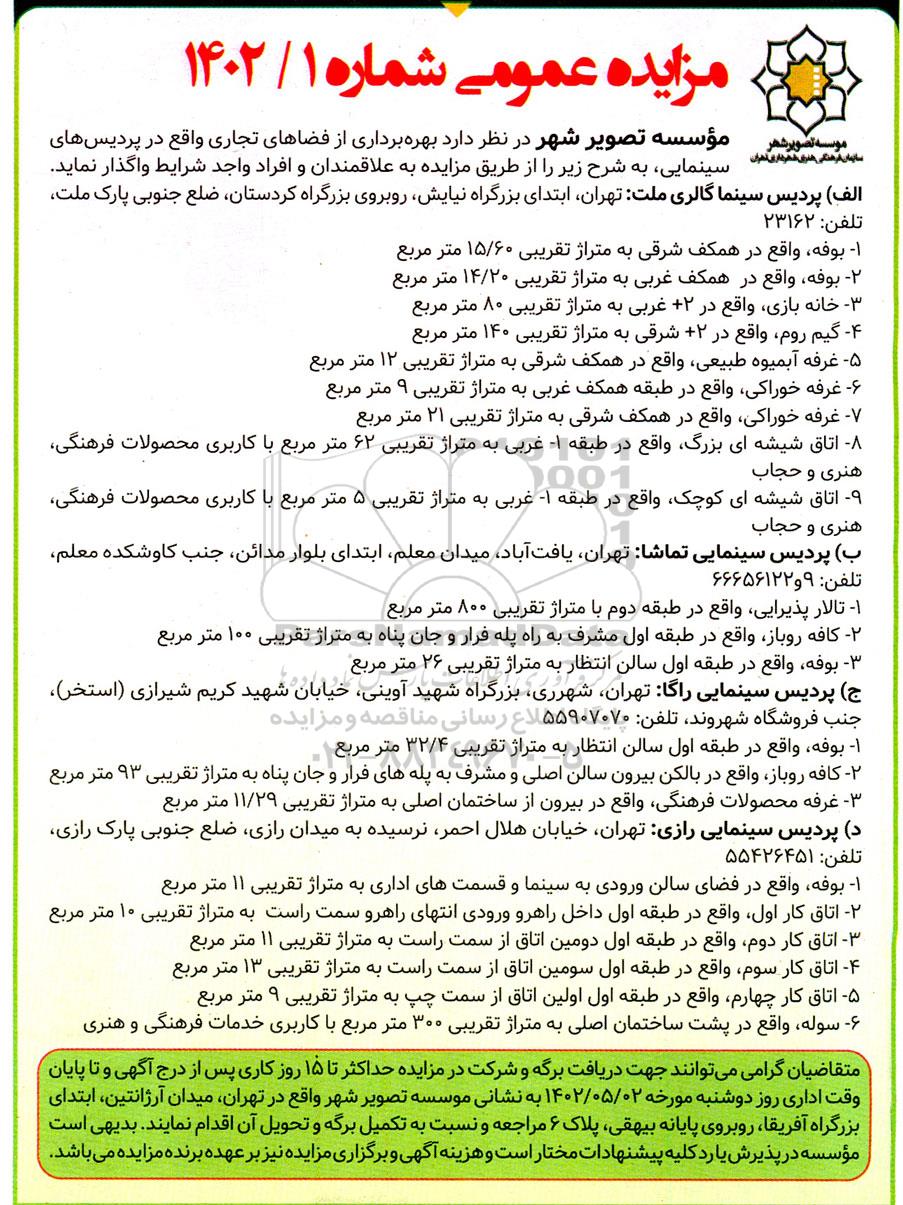 مزایده عمومی شماره ۱ / ۱۴۰۲
موسسه تصویر شهر
سازمان فرهنگی هنری شهرداری تهران
مؤسسه تصویر شهر در نظر دارد بهره‌برداری از فضاهای تجاری واقع در پردیس‌های
سینمایی، به شرح زیر را از طریق مزایده به علاقمندان و افراد واجد شرایط واگذار نماید.
الف) پردیس سینما گالری ملت: تهران، ابتدای بزرگراه نیایش، روبروی بزرگراه کردستان، ضلع جنوبی پارک ملت،
تلفن: ۲۳۱۶۲
۱- بوفه، واقع در همکف شرقی به متراژ تقریبی ۱۵/۶۰ متر مربع
۲- بوفه، واقع در همکف غربی به متراژ تقریبی ۱۴/۲۰ متر مربع
۳- خانه بازی، واقع در ۲+ غربی به متراژ تقریبی ۸۰ متر مربع
۴- گیم روم، واقع در ۲+ شرقی به متراژ تقریبی ۱۴۰ متر مربع
۵- غرفه آبمیوه طبیعی، واقع در همکف شرقی به متراژ تقریبی ۱۲ متر مربع
۶- غرفه خوراکی، واقع در طبقه همکف غربی به متراژ تقریبی ۹ متر مربع
۷- غرفه خوراکی، واقع در همکف شرقی به متراژ تقریبی ۲۱ متر مربع
۸- اتاق شیشه ای بزرگ، واقع در طبقه ۱- غربی به متراژ تقریبی ۶۲ متر مربع با کاربری محصولات فرهنگی،
هنری و حجاب
۹- اتاق شیشه ای کوچک، واقع در طبقه ۱- غربی به متراژ تقریبی ۵ متر مربع با کاربری محصولات فرهنگی،
هنری و حجاب
ب) پردیس سینمایی تماشا: تهران، یافت‌آباد، میدان معلم، ابتدای بلوار مدائن، جنب کاوشکده معلم،
تلفن: ۹و۶۶۶۵۶۱۲۲
۱- تالار پذیرایی، واقع در طبقه دوم با متراژ تقریبی ۸۰۰ متر مربع
۲- کافه روباز، واقع در طبقه اول مشرف به راه پله فرار و جان پناه به متراژ تقریبی ۱۰۰ متر مربع
۳- بوفه، واقع در طبقه اول سالن انتظار به متراژ تقریبی ۲۶ متر مربع
ج) پردیس سینمایی راگا: تهران، شهرری، بزرگراه شهید آوینی، خیابان شهید کریم شیرازی (استخر)،
جنب فروشگاه شهروند، تلفن: ۵۵۹۰۷۰۷۰
۱- بوفه، واقع در طبقه اول سالن انتظار به متراژ تقریبی ۳۲/۴ متر مربع
۲- کافه روباز، واقع در بالکن بیرون سالن اصلی و مشرف به پله های فرار و جان پناه به متراژ تقریبی ۹۳ متر مربع
۳- غرفه محصولات فرهنگی، واقع در بیرون از ساختمان اصلی به متراژ تقریبی ۱۱/۲۹ متر مربع
د) پردیس سینمایی رازی: تهران، خیابان هلال احمر، نرسیده به میدان رازی، ضلع جنوبی پارک رازی،
تلفن: ۵۵۴۲۶۴۵۱
۱- بوفه، واقع در فضای سالن ورودی به سینما و قسمت های اداری به متراژ تقریبی ۱۱ متر مربع
۲- اتاق کار اول، واقع در طبقه اول داخل راهرو ورودی انتهای راهرو سمت راست به متراژ تقریبی ۱۰ متر مربع
۳- اتاق کار دوم، واقع در طبقه اول دومین اتاق از سمت راست به متراژ تقریبی ۱۱ متر مربع
۴- اتاق کار سوم، واقع در طبقه اول سومین اتاق از سمت راست به متراژ تقریبی ۱۳ متر مربع
۵- اتاق کار چهارم، واقع در طبقه اول اولین اتاق از سمت چپ به متراژ تقریبی ۹ متر مربع
۶- سوله، واقع در پشت ساختمان اصلی به متراژ تقریبی ۳۰۰ متر مربع با کاربری خدمات فرهنگی و هنری
متقاضیان گرامی می‌توانند جهت دریافت برگه و شرکت در مزایده حداکثر تا ۱۵ روز کاری پس از درج آگهی و تا پایان
وقت اداری روز دوشنبه مورخه ۱۴۰۲/۰۵/۰۲ به نشانی موسسه تصویر شهر واقع در تهران، میدان آرژانتین، ابتدای
بزرگراه آفریقا، روبروی پایانه بیهقی، پلاک ۶ مراجعه و نسبت به تکمیل برگه و تحویل آن اقدام نمایند. بدیهی است
مؤسسه در پذیرش یا رد کلیه پیشنهادات مختار است و هزینه آگهی و برگزاری مزایده نیز بر عهده برنده مزایده می باشد.
ParsNamadData
پایگاه اطلاع رسانی مناقصه و مزایده
۰۲۱-۸۸۳۴۹۶۷۰-۵